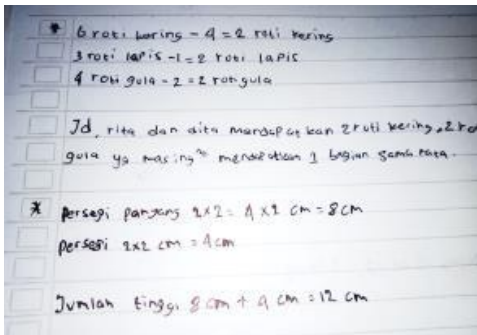 * 6 roti kering - 4 = 2 roti kering
3 roti lapis - 1 = 2 roti lapis
4 roti gula - 2 = 2 roti gula
Jd, rita dan dita mendapatkan 2 roti kering, 2 ro
gula yg masing² mendapatkan 1 bagian sama rata.
* Persegi panjang 2x2 = 4 x 2 cm = 8 cm
Persegi 2x2 cm = 4 cm
Jumlah tinggi 8 cm + 4 cm = 12 cm